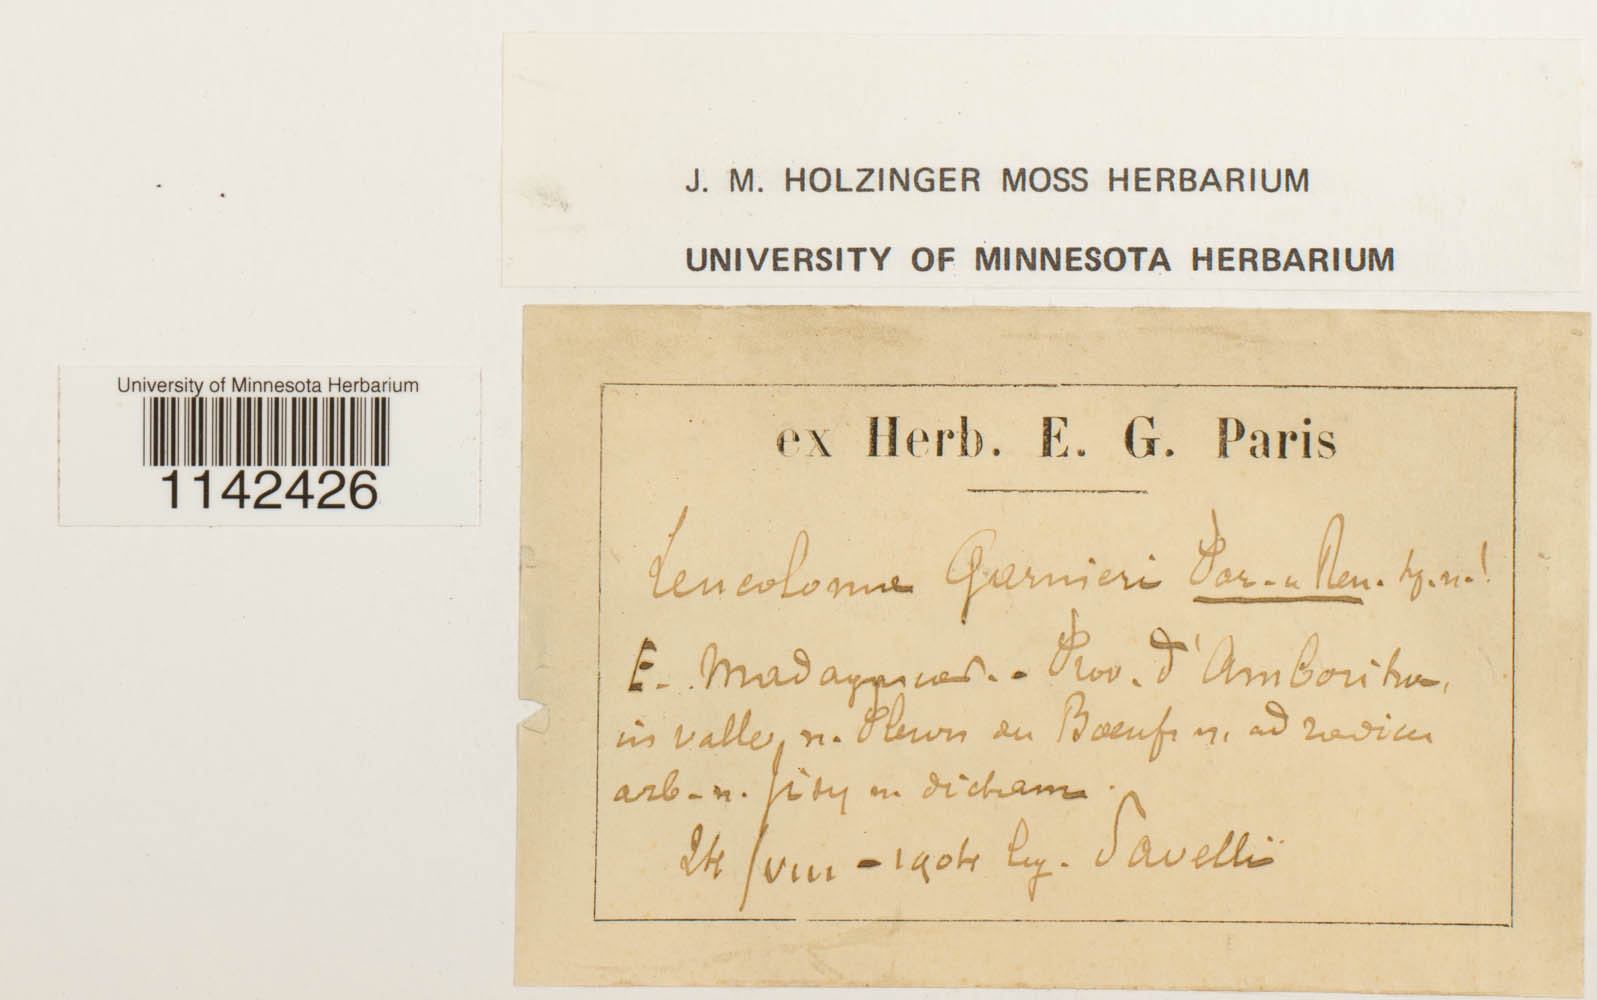 J. M. HOLZINGER MOSS HERBARIUM
UNIVERSITY OF MINNESOTA HERBARIUM
University of Minnesota Herbarium
1142426
ex Herb. E. G. Paris
Leucoloma Garnieri Par. Ren.
E. Madagascar. - Prov. d'Ambositra,
in valle n. Boeufs ad radices
arb. n.
24/VIII - 1904 leg. Savelli